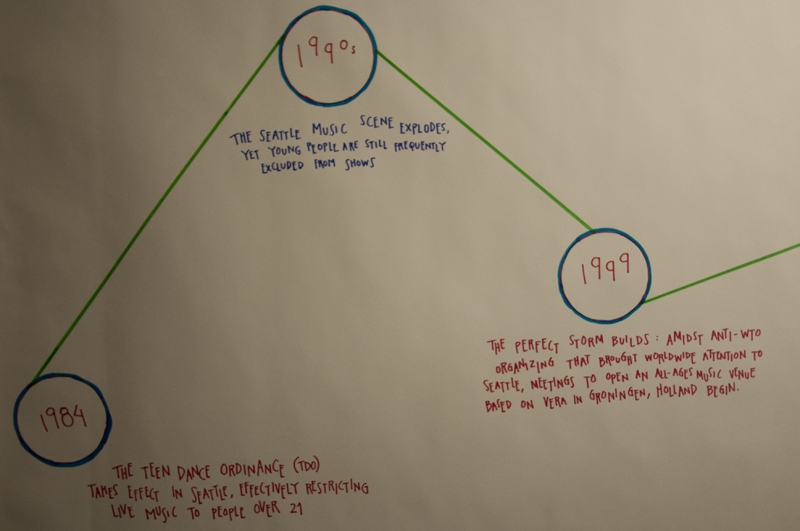 1990s
THE SEATTLE MUSIC SCENE EXPLODES,
YET YOUNG PEOPLE ARE STILL FREQUENTLY
EXCLUDED FROM SHOWS
1999
THE PERFECT STORM BUILDS: AMIDST ANTI-WTO
ORGANIZING THAT BROUGHT WORLDWIDE ATTENTION TO
SEATTLE, MEETINGS TO OPEN AN ALL-AGES MUSIC VENUE
BASED ON VERA IN GRONINGEN, HOLLAND BEGIN.
1984
THE TEEN DANCE ORDINANCE (TDO)
TAKES EFFECT IN SEATTLE, EFFECTIVELY RESTRICTING
LIVE MUSIC TO PEOPLE OVER 21